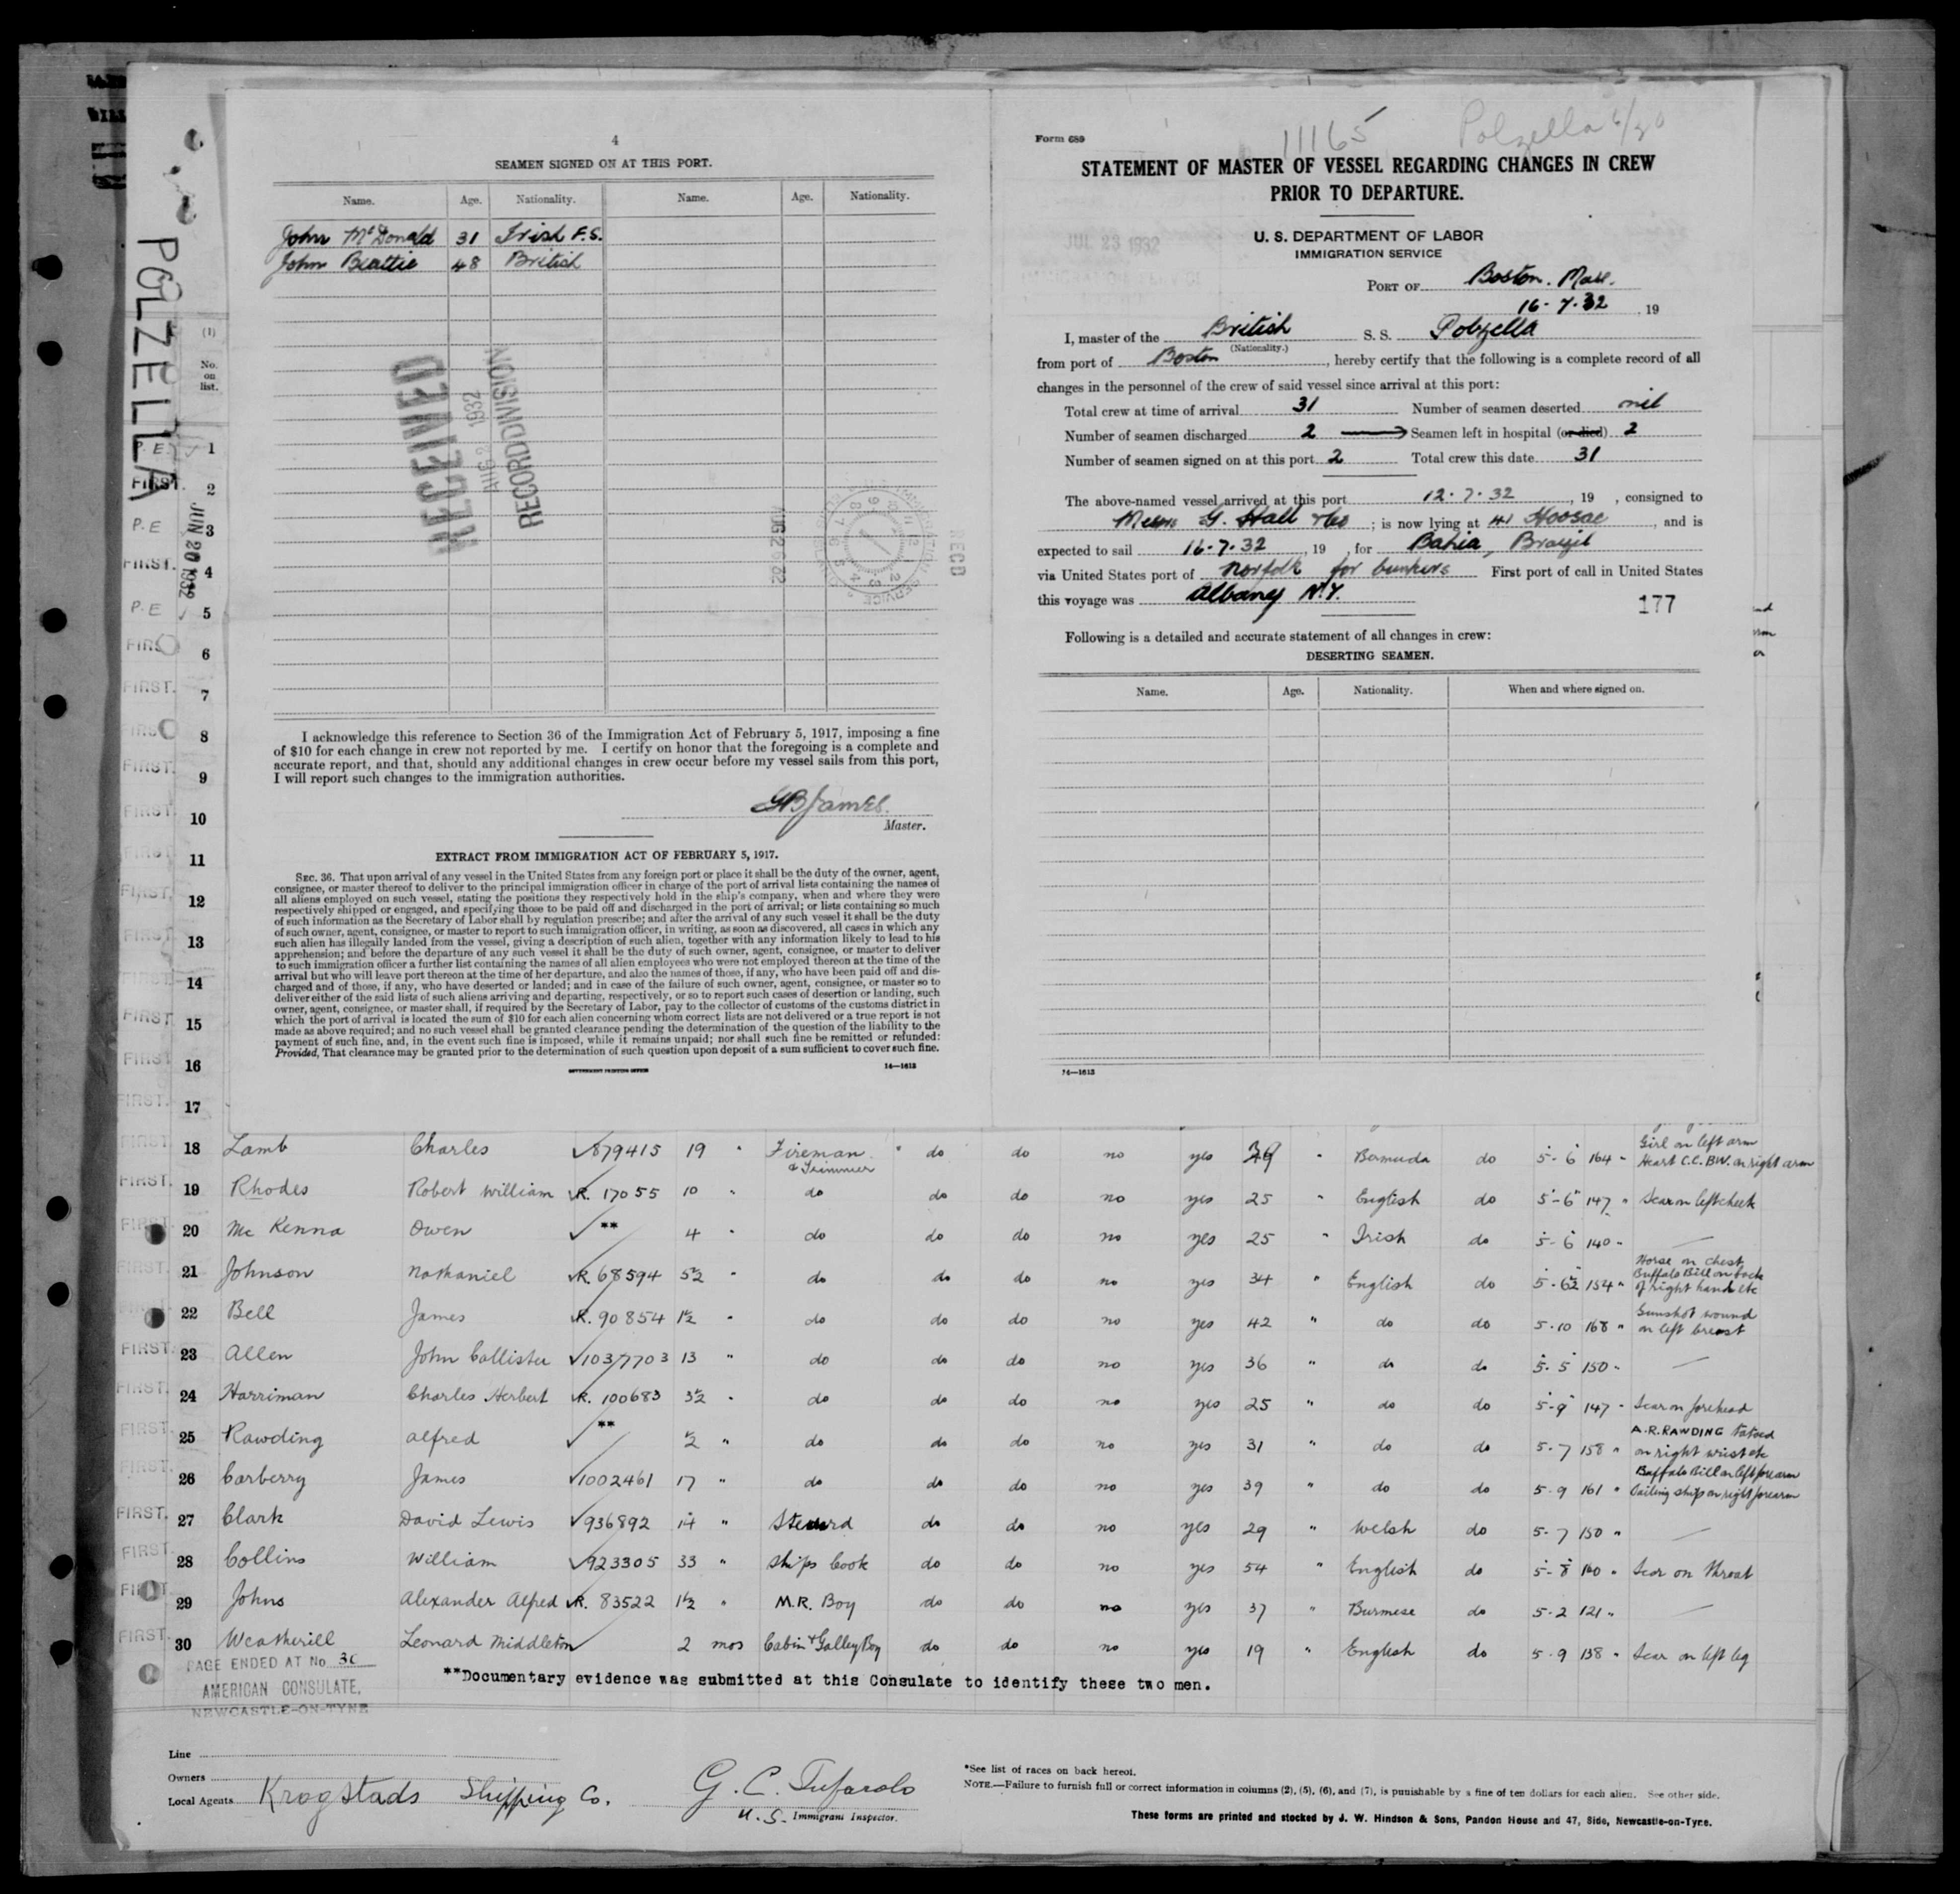 POLZELLA
4
SEAMEN SIGNED ON AT THIS PORT.
Name. Age. Nationality. Name. Age. Nationality.
John McDonald 31 Irish F.S.
John Beattie 48 British
RECEIVED
1932
RECORD DIVISION
AUG 26 32
RECD
JUN 20 1932
I acknowledge this reference to Section 36 of the Immigration Act of February 5, 1917, imposing a fine
of $10 for each change in crew not reported by me. I certify on honor that the foregoing is a complete and
accurate report, and that, should any additional changes in crew occur before my vessel sails from this port,
I will report such changes to the immigration authorities.
GB James.
Master.
EXTRACT FROM IMMIGRATION ACT OF FEBRUARY 5, 1917.
SEC. 36. That upon arrival of any vessel in the United States from any foreign port or place it shall be the duty of the owner, agent,
consignee, or master thereof to deliver to the principal immigration officer in charge of the port of arrival lists containing the names of
all aliens employed on such vessel, stating the positions they respectively hold in the ship's company, when and where they were
respectively shipped or engaged, and specifying those to be paid off and discharged in the port of arrival; or lists containing so much
of such information as the Secretary of Labor shall by regulation prescribe; and after the arrival of any such vessel it shall be the duty
of such owner, agent, consignee, or master to report to such immigration officer, in writing, as soon as discovered, all cases in which any
such alien has illegally landed from the vessel, giving a description of such alien, together with any information likely to lead to his
apprehension; and before the departure of any such vessel it shall be the duty of such owner, agent, consignee, or master to deliver
to such immigration officer a further list containing the names of all alien employees who were not employed thereon at the time of the
arrival but who will leave port thereon at the time of her departure, and also the names of those, if any, who have been paid off and dis-
charged and of those, if any, who have deserted or landed; and in case of the failure of such owner, agent, consignee, or master so to
deliver either of the said lists of such aliens arriving and departing, respectively, or so to report such cases of desertion or landing, such
owner, agent, consignee, or master shall, if required by the Secretary of Labor, pay to the collector of customs of the customs district in
which the port of arrival is located the sum of $10 for each alien concerning whom correct lists are not delivered or a true report is not
made as above required; and no such vessel shall be granted clearance pending the determination of the question of the liability to the
payment of such fine, and, in the event such fine is imposed, while it remains unpaid; nor shall such fine be remitted or refunded:
Provided, That clearance may be granted prior to the determination of such question upon deposit of a sum sufficient to cover such fine.
GOVERNMENT PRINTING OFFICE 14—1613
Form 689
11165 Polzella
STATEMENT OF MASTER OF VESSEL REGARDING CHANGES IN CREW
PRIOR TO DEPARTURE.
JUL 23 1932
U. S. DEPARTMENT OF LABOR
IMMIGRATION SERVICE
PORT OF Boston. Mass.
16-7-32, 19
I, master of the British S. S. Polzella
(Nationality.)
from port of Boston, hereby certify that the following is a complete record of all
changes in the personnel of the crew of said vessel since arrival at this port:
Total crew at time of arrival 31 Number of seamen deserted nil
Number of seamen discharged 2 Seamen left in hospital (or died) 2
Number of seamen signed on at this port 2 Total crew this date 31
The above-named vessel arrived at this port 12-7-32, 19 , consigned to
Messrs G. Hall & Co ; is now lying at 41 Hoosac, and is
expected to sail 16-7-32, 19 , for Bahia, Brazil
via United States port of Norfolk for bunkers First port of call in United States
this voyage was Albany N.Y.
177
Following is a detailed and accurate statement of all changes in crew:
DESERTING SEAMEN.
Name. Age. Nationality. When and where signed on.
14—1613
(1)
No.
on
list.
P.E. 1
FIRST. 2
P.E 3
FIRST. 4
P.E 5
FIRST 6
FIRST. 7
FIRST 8
FIRST. 9
FIRST. 10
FIRST 11
FIRST. 12
FIRST 13
FIRST 14
FIRST 15
FIRST. 16
FIRST. 17
FIRST 18 Lamb Charles 879415 19 " Fireman & Trimmer " do do no yes 39 " Bermuda do 5-6 164 " Girl on left arm Heart C.C. B.W. on right arm
FIRST. 19 Rhodes Robert William R. 17055 10 " do do do no yes 25 " English do 5-6 147 " Scar on left cheek
FIRST 20 Mc Kenna Owen ** 4 " do do do no yes 25 " Irish do 5-6 140 " —
FIRST. 21 Johnson Nathaniel R. 68594 5½ " do do do no yes 34 " English do 5-6½ 154 " Horse on chest Buffalo Bill on back of right hand etc
FIRST 22 Bell James R. 90854 1½ " do do do no yes 42 " do do 5-10 168 " Gunshot wound on left breast
FIRST. 23 Allen John Collister 1037703 13 " do do do no yes 36 " do do 5-5 150 " —
FIRST. 24 Harriman Charles Herbert R. 100683 3½ " do do do no yes 25 " do do 5-9 147 " Scar on forehead
FIRST. 25 Rawding Alfred ** ½ " do do do no yes 31 " do do 5-7 158 " A.R. RAWDING tatood on right wrist etc
FIRST 26 Carberry James 1002461 17 " do do do no yes 39 " do do 5-9 161 " Buffalo Bill on left forearm Sailing ship on right forearm
FIRST. 27 Clark David Lewis 936892 14 " Steward do do no yes 29 " Welsh do 5-7 150 " —
FIRST 28 Collins William 923305 33 " Ships Cook do do no yes 54 " English do 5-8 160 " Scar on throat
FIRST 29 Johns Alexander Alfred R. 83522 1½ " M.R. Boy do do no yes 37 " Burmese do 5-2 121 " —
FIRST 30 Weatherill Leonard Middleton 2 mos Cabin & Galley Boy do do no yes 19 " English do 5-9 138 " Scar on left leg
PAGE ENDED AT No 30
AMERICAN CONSULATE,
NEWCASTLE-ON-TYNE
**Documentary evidence was submitted at this Consulate to identify these two men.
Line
Owners
Local Agents Kragstads Shipping Co.
G. C. Tufarolo
U. S. Immigrant Inspector.
*See list of races on back hereof.
NOTE.—Failure to furnish full or correct information in columns (2), (5), (6), and (7), is punishable by a fine of ten dollars for each alien. See other side.
These forms are printed and stocked by J. W. Hindson & Sons, Pandon House and 47, Side, Newcastle-on-Tyne.